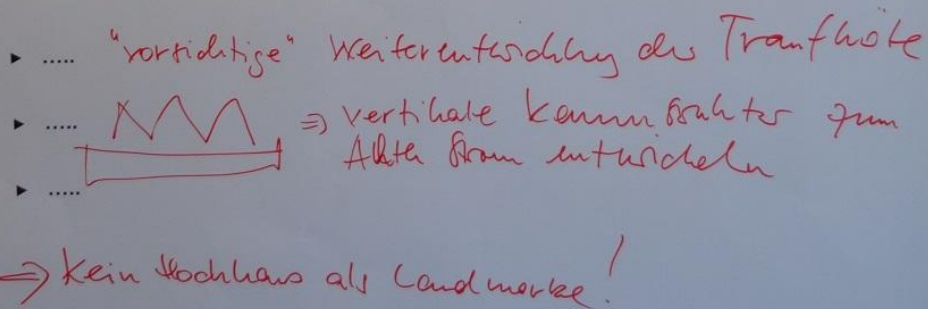 ▶ ..... "vorsichtige" Weiterentwicklung der Traufhöhe
▶ ..... ⇒ vertikale Kammstruktur zum
Alten Strom entwickeln
▶ .....
⇒ Kein Hochhaus als Landmarke!